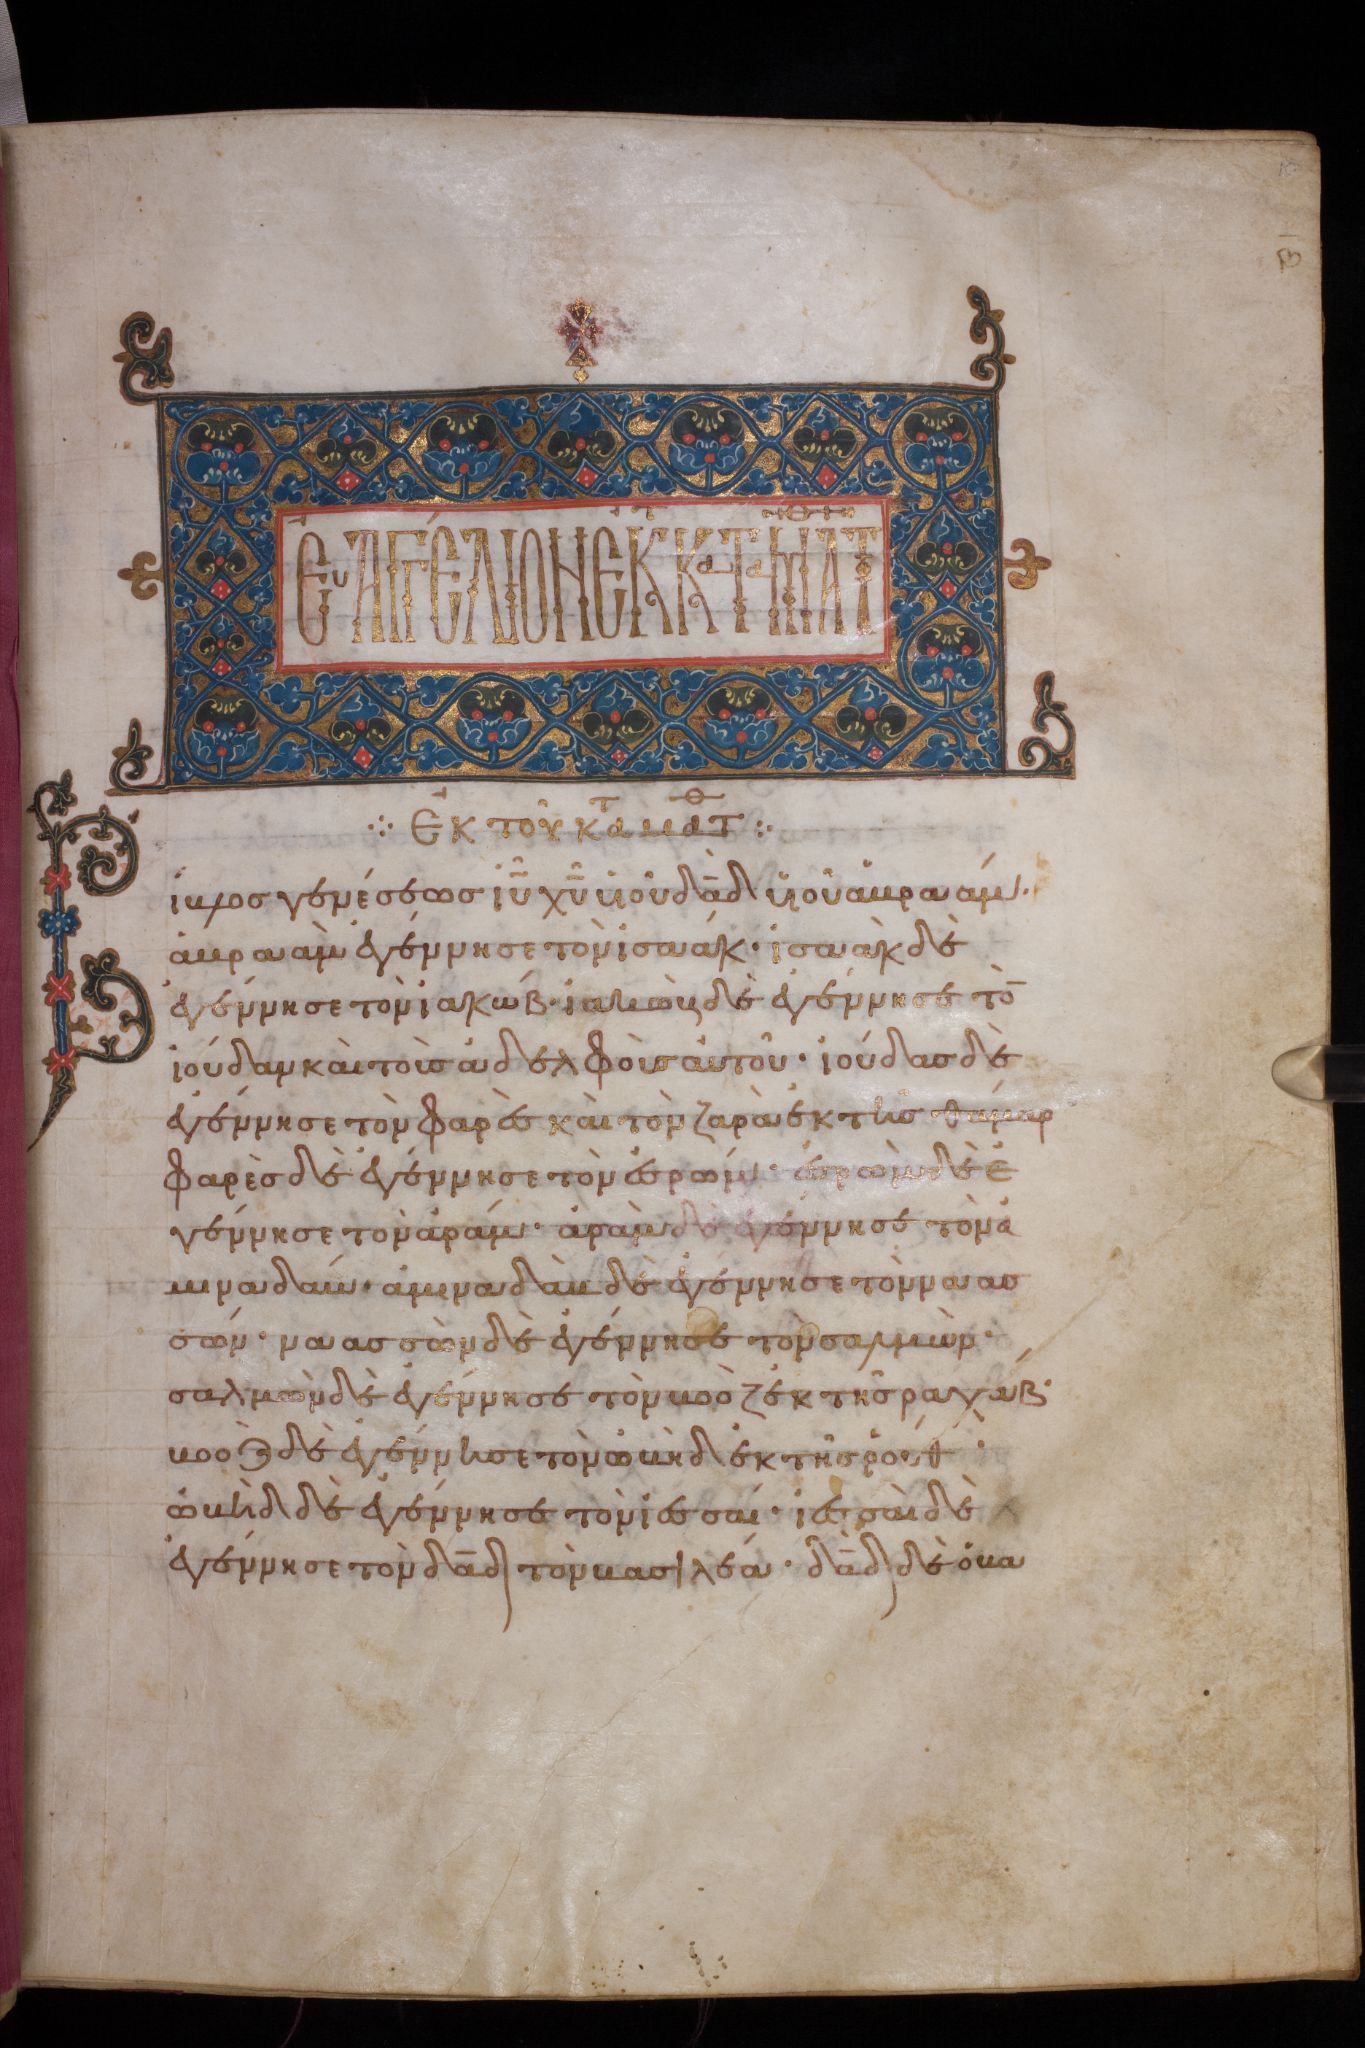 β
ΕυΑΓΓΕΛΙΟΝ ΕΚ ΚαΤαΜΑΤθ
Ἐκ τοῦ κατὰ ματθ
Βίβλος γενέσεως ἰῦ χῦ υἱοῦ δᾱδ υἱοῦ ἀβραάμ·
ἀβραὰμ ἐγέννησε τὸν ἰσαάκ· ἰσαὰκ δὲ
ἐγέννησε τὸν ἰακώβ· ἰακὼβ δὲ ἐγέννησε τὸ̄
ἰούδαν καὶ τοὺς ἀδελφοὺς αὐτοῦ· ἰούδας δὲ
ἐγέννησε τὸν φαρὲς καὶ τὸν ζαρὰ ἐκ τῆς θάμαρ
φαρὲς δὲ ἐγέννησε τὸν ἐσρώμ· ἐσρὼμ δὲ ἐ
γέννησε τὸν ἀράμ· ἀρὰμ δὲ ἐγέννησε τὸν ἀ
μιναδάβ· ἀμιναδὰβ δὲ ἐγέννησε τὸν ναασ
σών· ναασσὼν δὲ ἐγέννησε τὸν σαλμών·
σαλμὼν δὲ ἐγέννησε τὸν βοὸζ ἐκ τῆς ραχάβ·
βοὸζ δὲ ἐγέννησε τὸν ὠβὴδ ἐκ τῆς ρούθ·
ὠβὴδ δὲ ἐγέννησε τὸν ἰεσσαί· ἰεσσαὶ δὲ
ἐγέννησε τὸν δᾱδ τὸν βασιλέα· δᾱδ δὲ ὁ βα